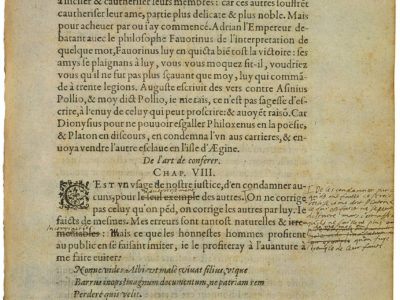 a inciser & cautheriser leurs membres: car ces autres souffrēt
cautheriser leur ame, partie plus delicate & plus noble. Mais
pour acheuer par ou i'ay cōmencé. Adrian l'Empereur de-
batant auec le philosophe Fauorinus de l'interpretation de
quelque mot, Fauorinus luy en quicta biē tost la victoire: ses
amys se plaignans à luy, vous vous moquez fit-il, voudriez
vous qu'il ne fut pas plus sçauant que moy, luy qui commā-
de à trente legions. Auguste escriuit des vers contre Asinius
Pollio, & moy dict Pollio, ie me tais, ce n'est pas sagesse d'es-
crire, à l'enuy de celuy qui peut proscrire: & auoyēt raisō. Car
Dionysius pour ne pouuoir esgaller Philoxenus en la poësie,
& Platon en discours, en condemna l'vn aus carrieres, & en-
uoya vendre l'autre esclaue en l'isle d'Ægine.
De l'art de conferer.
CHAP. VIII.
C'EST vn vsage de nostre iustice, d'en condamner au-
cuns, pour le seul exemple des autres.
On ne corrige
pas celuy qu'on pēd, on corrige les autres par luy. Ie
faicts de mesmes. Mes erreurs sont tantost naturelles & irre-
mediables: Mais ce que les honnestes hommes profitent
au public en se faisant imiter, ie le profiteray à l'auanture à
me faire euiter:
Nonne vides Albi vt male viuat filius, vtque
Barrus inops? magnum documentum, ne patriam rem
Perdere quis velit.